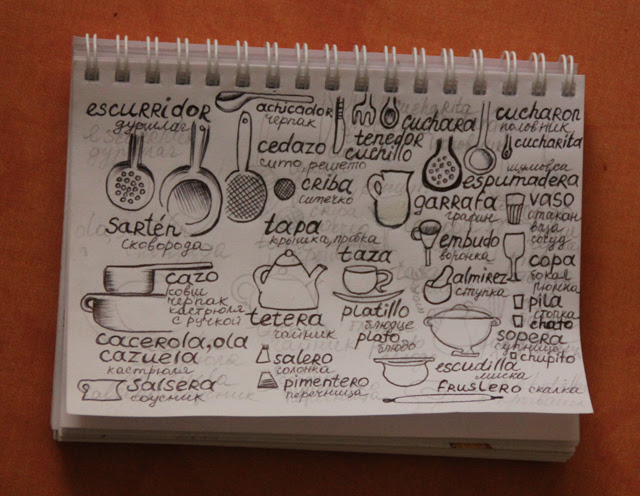 escurridor
дуршлаг
achicador
черпак
cedazo
сито, решето
criba
ситечко
tenedor
cuchillo
cuchara
cucharon
половник
cucharita
шумовка
espumadera
sartén
сковорода
tapa
крышка, пробка
garrafa
графин
vaso
стакан
ваза
сосуд
embudo
воронка
copa
бокал
рюмка
taza
cazo
ковш
черпак
кастрюля
с ручкой
tetera
чайник
platillo
блюдце
plato
блюдо
almirez
ступка
pila
стопка
chato
cacerola, ola
cazuela
кастрюля
salero
солонка
sopera
супница
chupito
escudilla
миска
salsera
соусник
pimentero
перечница
fruslero скалка